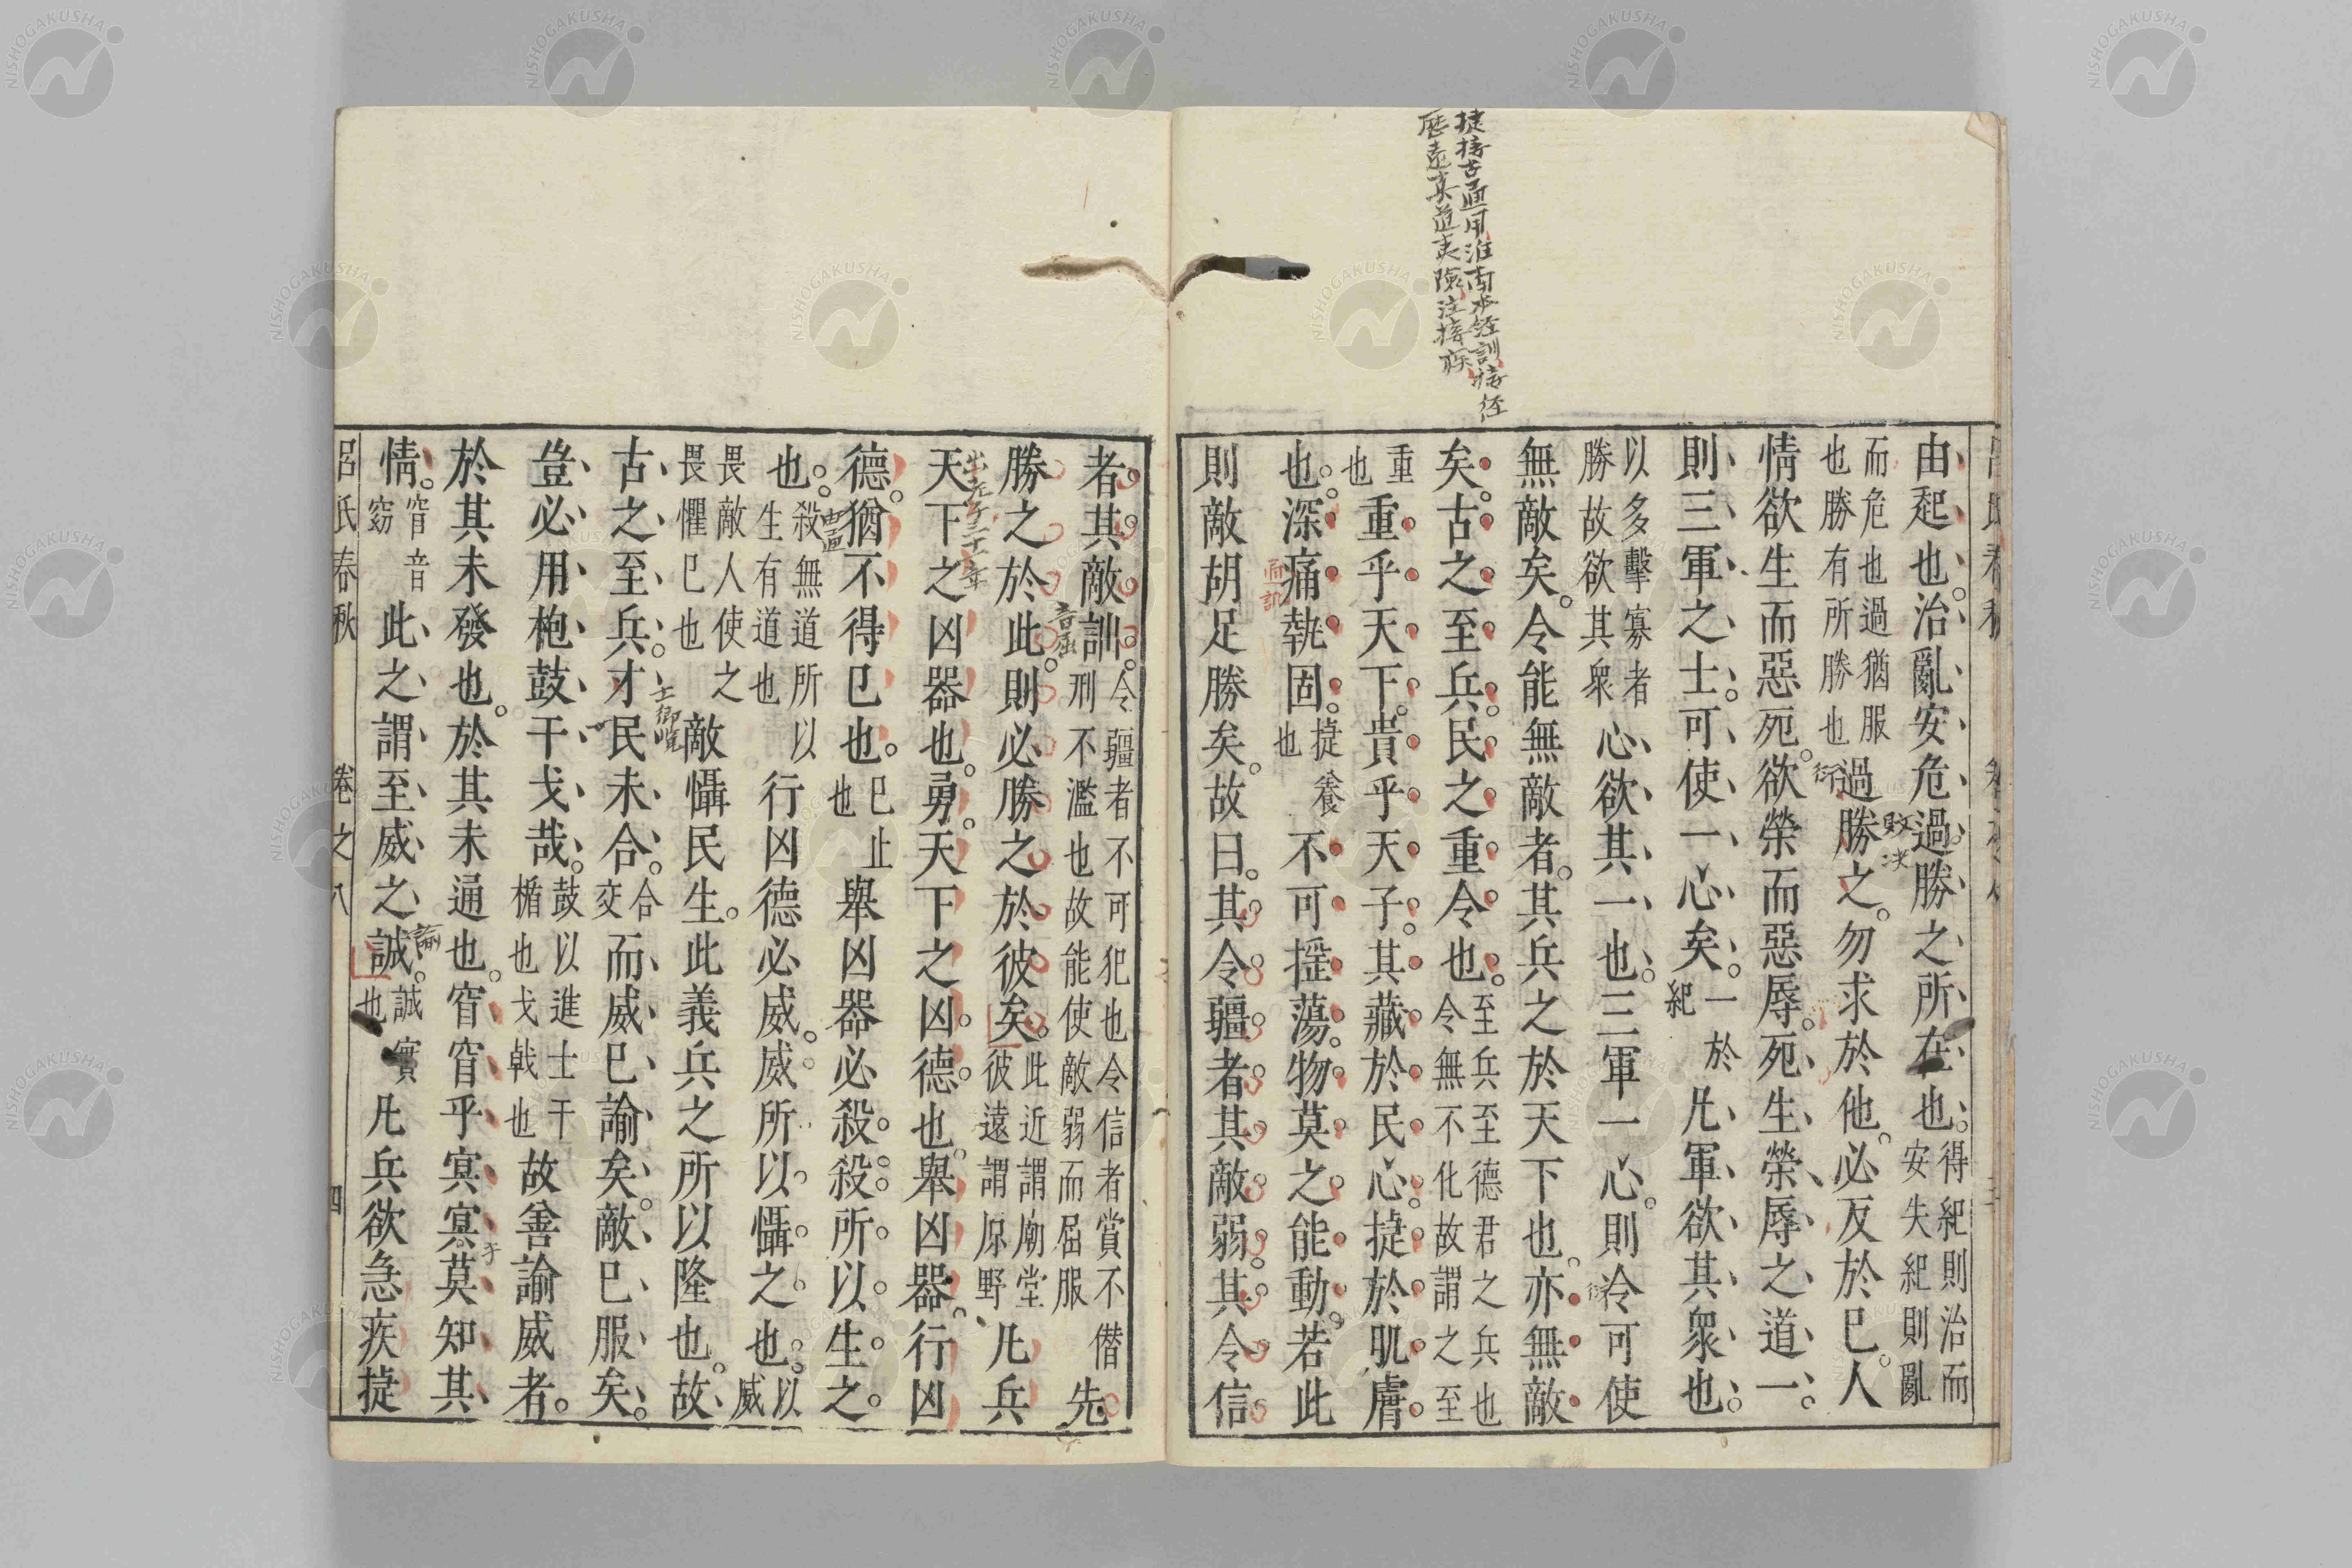 由起也治亂安危過勝之所在也得紀則治而安失紀則亂
而危也過猶服也勝有所勝也過勝之勿求於他必反於已人
情欲生而惡死欲榮而惡辱死生榮辱之道一
則三軍之士可使一心矣一於紀凡軍欲其衆也
以多擊寡者勝故欲其衆心欲其一也三軍一心則令可使
無敵矣令能無敵者其兵之於天下也亦無敵
矣古之至兵民之重令也至兵至德君之兵也令無不化故謂之至
重也重乎天下貴乎天子其藏於民心捷於肌膚
也深痛執固捷養也不可搖蕩物莫之能動若此
則敵胡足勝矣故曰其令彊者其敵弱其令信
捷接古通用淮南本經訓接徑
歷遠直道夷險注接疾
衍
敗
衍
者其敵詘令彊者不可犯也令信者賞不僭刑不濫也故能使敵弱而屈服先
勝之於此則必勝之於彼矣此近謂廟堂彼遠謂原野凡兵
天下之凶器也勇天下之凶德也舉凶器行凶
德猶不得已也已止也舉凶器必殺殺所以生之
也殺無道所以生有道也行凶德必威威所以懾之也以威
畏敵人使之畏懼已也敵懾民生此義兵之所以隆也故
古之至兵才民未合合交而威已諭矣敵已服矣
豈必用枹鼓干戈哉鼓以進士干楯也戈戟也故善諭威者
於其未發也於其未通也窅窅乎冥冥莫知其
情窅音窈此之謂至威之誠誠實也凡兵欲急疾捷
音屈
由通
士御覽
諭
呂氏春秋 卷之八 四
NISHOGAKUSHA